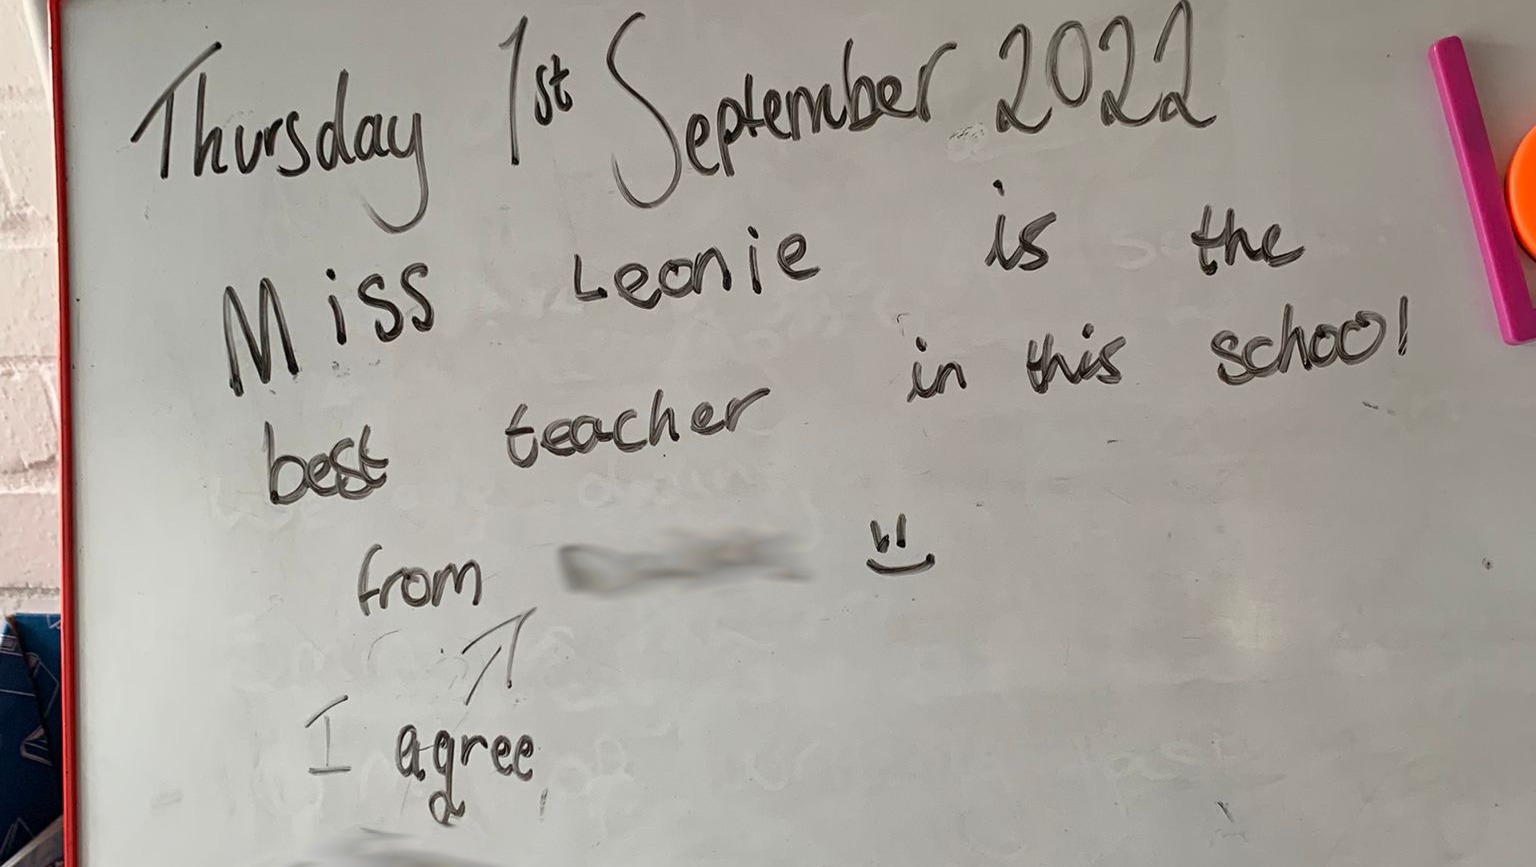 Thursday 1st September 2022
Miss Leonie is the
best teacher in this school
from
I agree